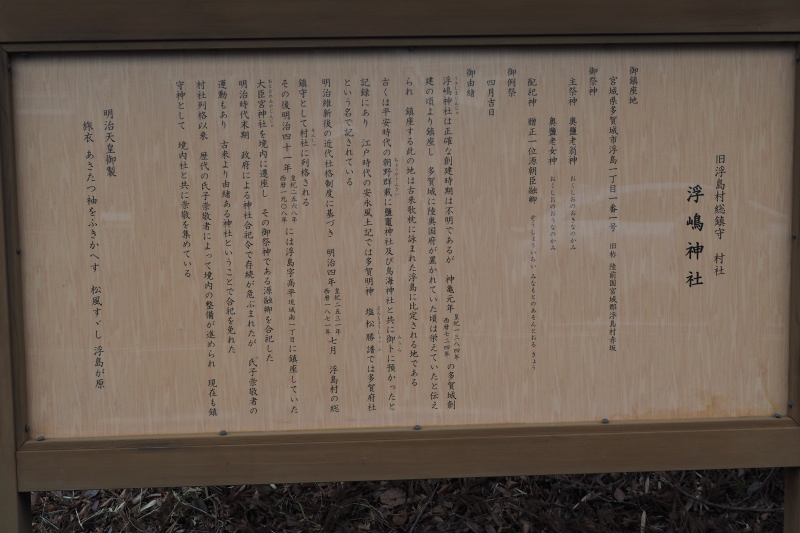 旧浮島村総鎮守　村社
浮嶋神社
御鎮座地
宮城県多賀城市浮島一丁目一番一号　旧称 陸前国宮城郡浮島村赤坂
御祭神
主祭神　奥鹽老翁神　おくしおのおきなのかみ
奥鹽老女神　おくしおのおうなのかみ
配祀神　贈正一位源朝臣融卿　ぞうしょういちい みなもとのあそんとおるきょう
御例祭
四月吉日
御由緒
浮嶋神社は正確な創建時期は不明であるが　神亀元年 皇紀一三八四年 西暦七二四年 の多賀城創
建の頃より鎮座し　多賀城に陸奥国府が置かれていた頃は栄えていたと伝え
られ　鎮座する此の地は古来歌枕に詠まれた浮島に比定される地である
古くは平安時代の朝野群載に鹽竈神社及び鳥海神社と共に御卜に預かったと
記録にあり　江戸時代の安永風土記では多賀明神　塩松勝譜では多賀府社
という名で記されている
明治維新後の近代社格制度に基づき　明治四年 皇紀二五三一年 西暦一八七一年 七月　浮島村の総
鎮守として村社に列格される
その後明治四十一年 皇紀二五六八年 西暦一九〇八年 には浮島字高平 現城南一丁目 に鎮座していた
大臣宮神社を境内に遷座し　その御祭神である源融卿を合祀した
明治時代末期　政府による神社合祀令で存続が危ぶまれたが　氏子崇敬者の
運動もあり　古来より由緒ある神社ということで合祀を免れた
村社列格以来　歴代の氏子崇敬者によって境内の整備が進められ　現在も鎮
守神として　境内社と共に崇敬を集めている
明治天皇御製
旅衣　あさたつ袖をふきかへす　松風すゞし　浮島が原